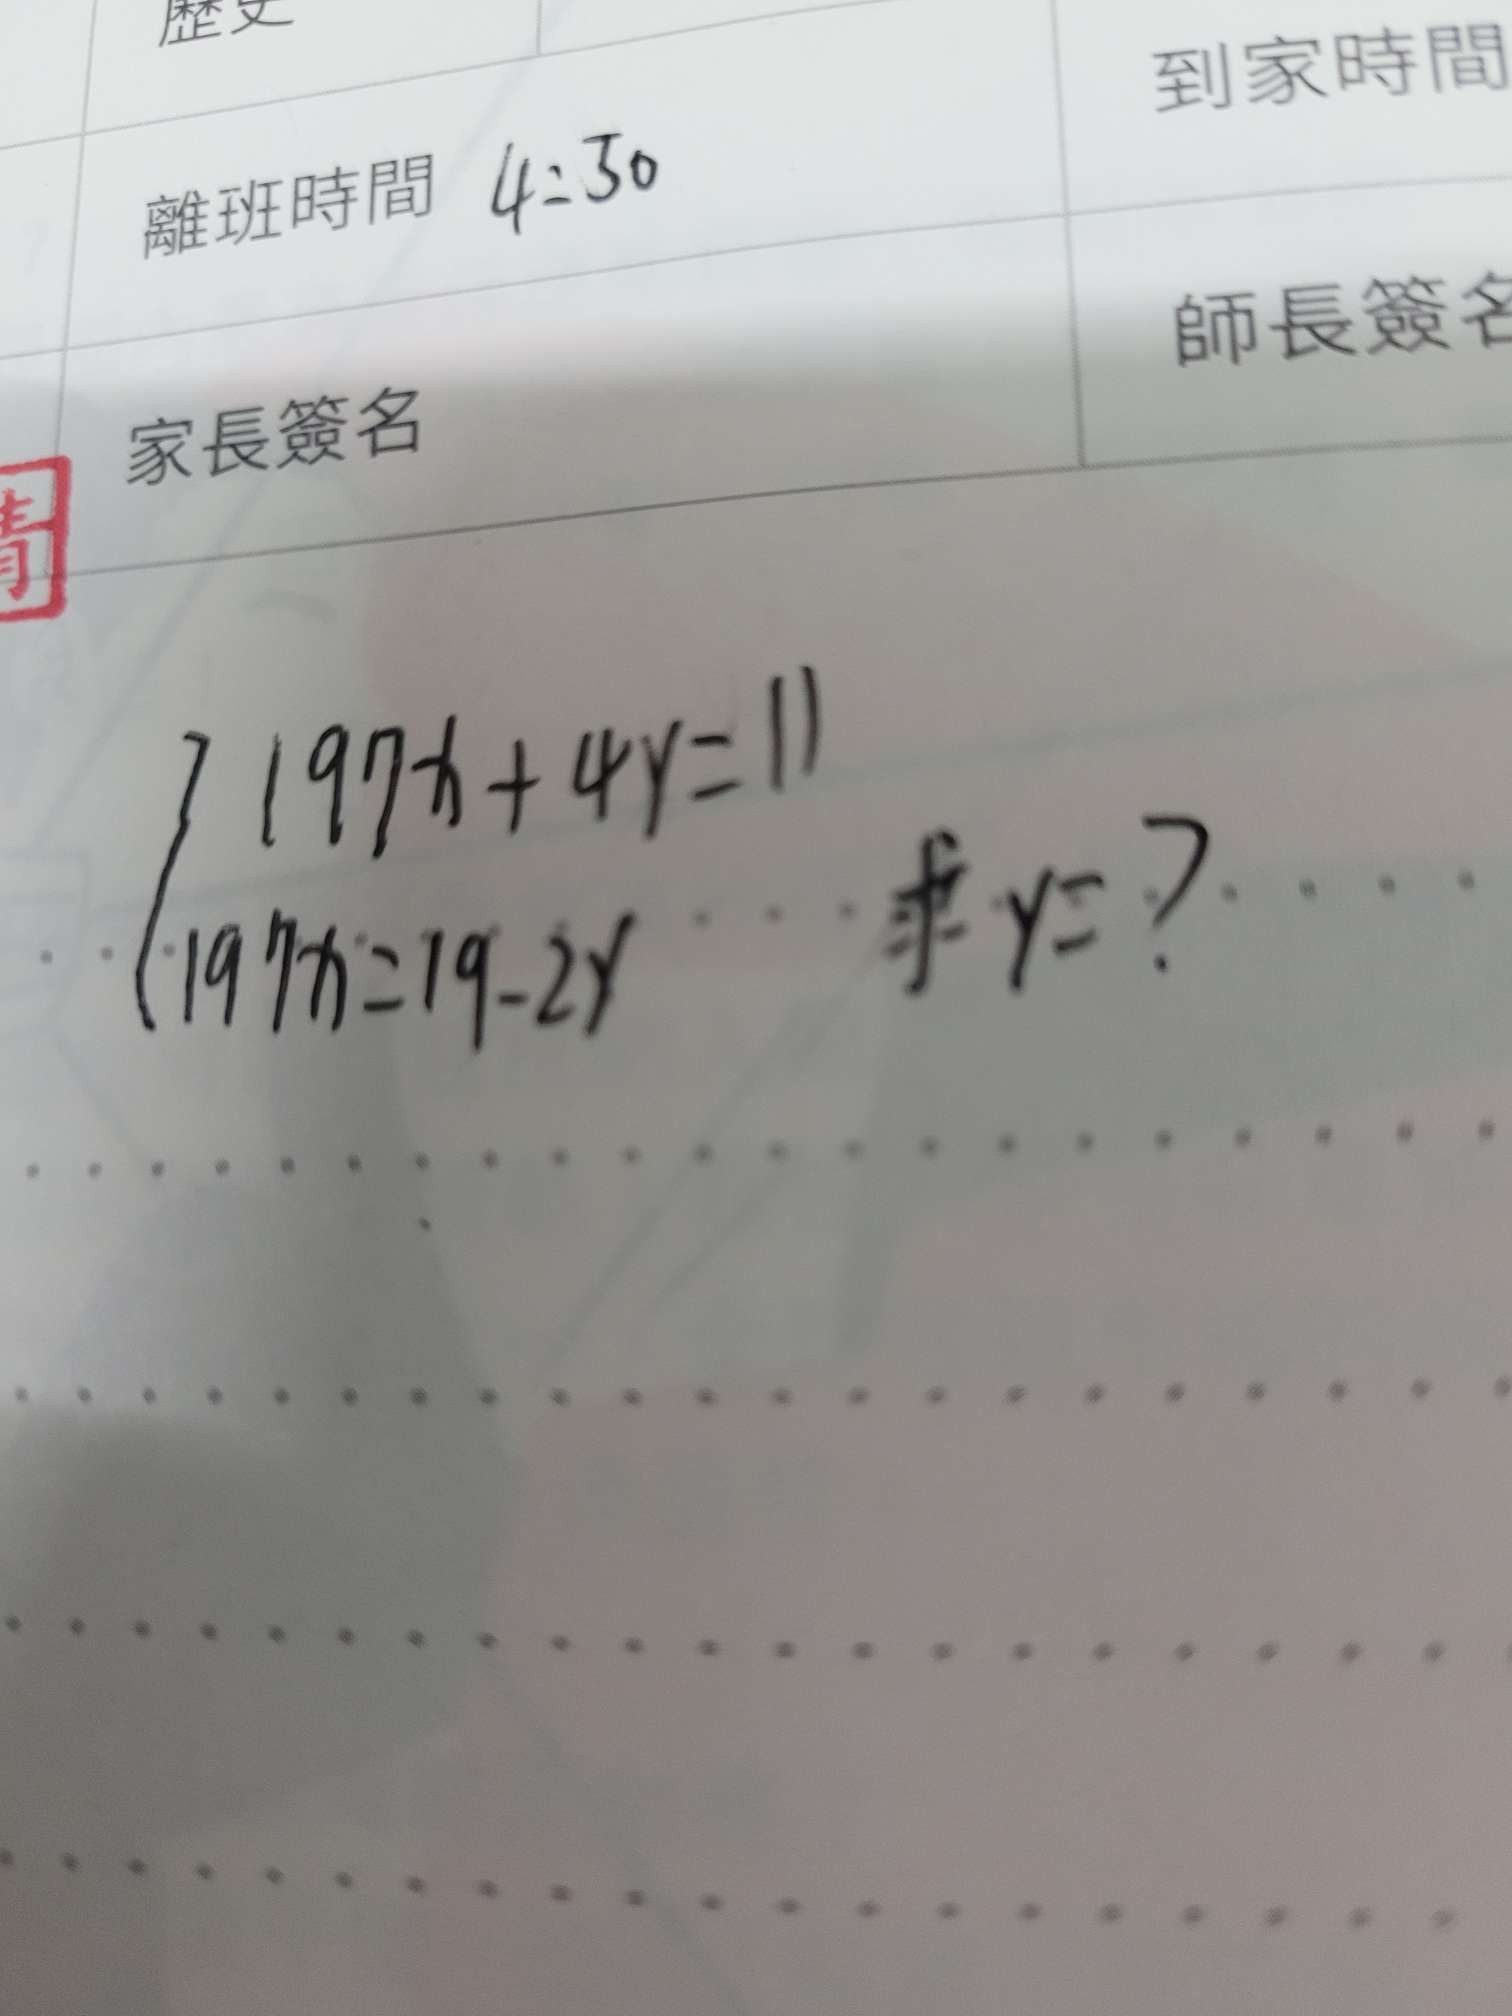 歷史
到家時間
離班時間 4:50
師長簽名
家長簽名
197x+4y=11
197x=19-2y
求y=?